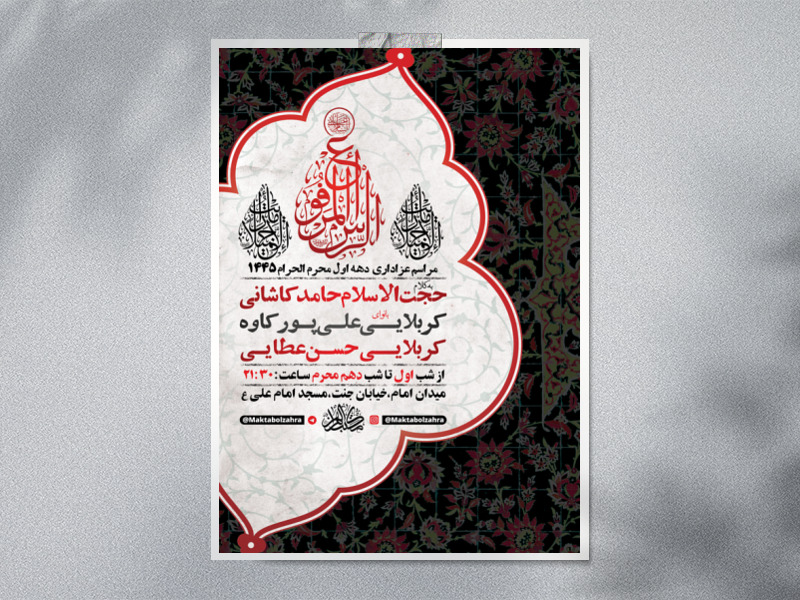 الرأس المرفوع
مراسم عزاداری دهه اول محرم الحرام ۱۴۴۵
به کلام
حجت الاسلام حامد کاشانی
بانوای
کربلایی علی پور کاوه
کربلایی حسن عطایی
از شب اول تا شب دهم محرم ساعت: ۲۱:۳۰
میدان امام، خیابان جنت، مسجد امام علی ع
@Maktabolzahra @Maktabolzahra